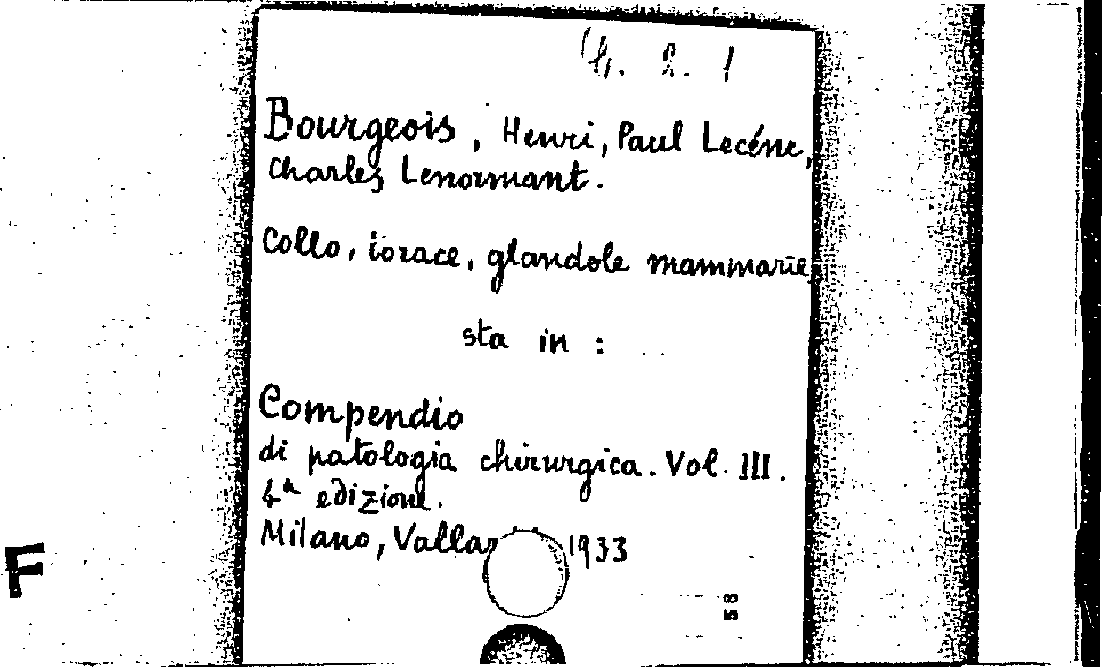 4. 2. 1
Bourgeois, Henri, Paul Lecéne,
Charles Lenormant.
Collo, torace, glandole mammarie
sta in :
Compendio
di patologia chirurgica. Vol. III.
4ª edizione.
Milano, 1933
58
F